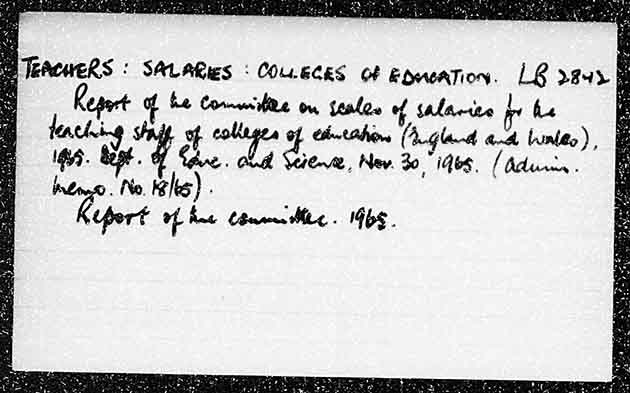 TEACHERS : SALARIES : COLLEGES OF EDUCATION. LB 2842
Report of the committee on scales of salaries for the
teaching staff of colleges of education (England and Wales),
1965. Dept. of Educ. and Science, Nov. 30, 1965. (Admin.
memo. No. 18/65).
Report of the committee. 1965.